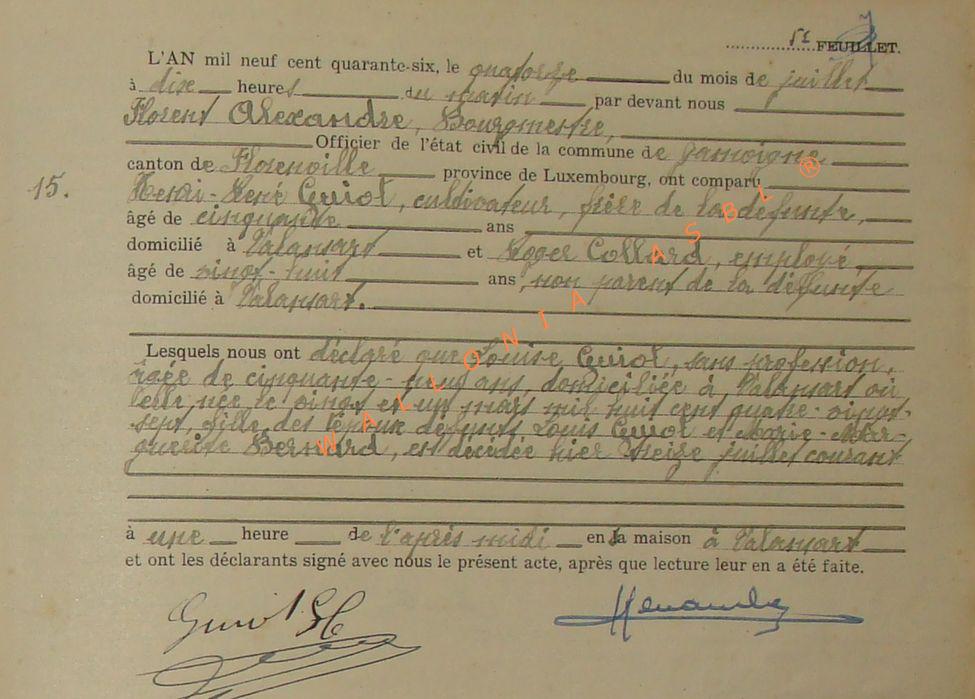 51 FEUILLET.
L'AN mil neuf cent quarante-six, le quatorze du mois de juillet
à dix heures du matin par devant nous
Florent Alexandre, Bourgmestre,
Officier de l'état civil de la commune de Jamoigne
canton de Florenville province de Luxembourg, ont comparu
15.
Henri-René Guiot, cultivateur, frère de la défunte,
âgé de cinquante ans
domicilié à Valansart et Roger Collard, employé,
âgé de vingt-huit ans, non parent de la défunte
domicilié à Valansart.
Lesquels nous ont déclaré que Louise Guiot, sans profession,
âgée de cinquante-neuf ans, domiciliée à Valansart où
elle, née le vingt et un mars mil huit cent quatre-vingt-
sept, fille des époux défunts Louis Guiot et Marie-Mar-
guerite Bernard, est décédée hier treize juillet courant
à une heure de l'après midi en la maison à Valansart
et ont les déclarants signé avec nous le présent acte, après que lecture leur en a été faite.
Guiot H
WALLONIA ASBL ®